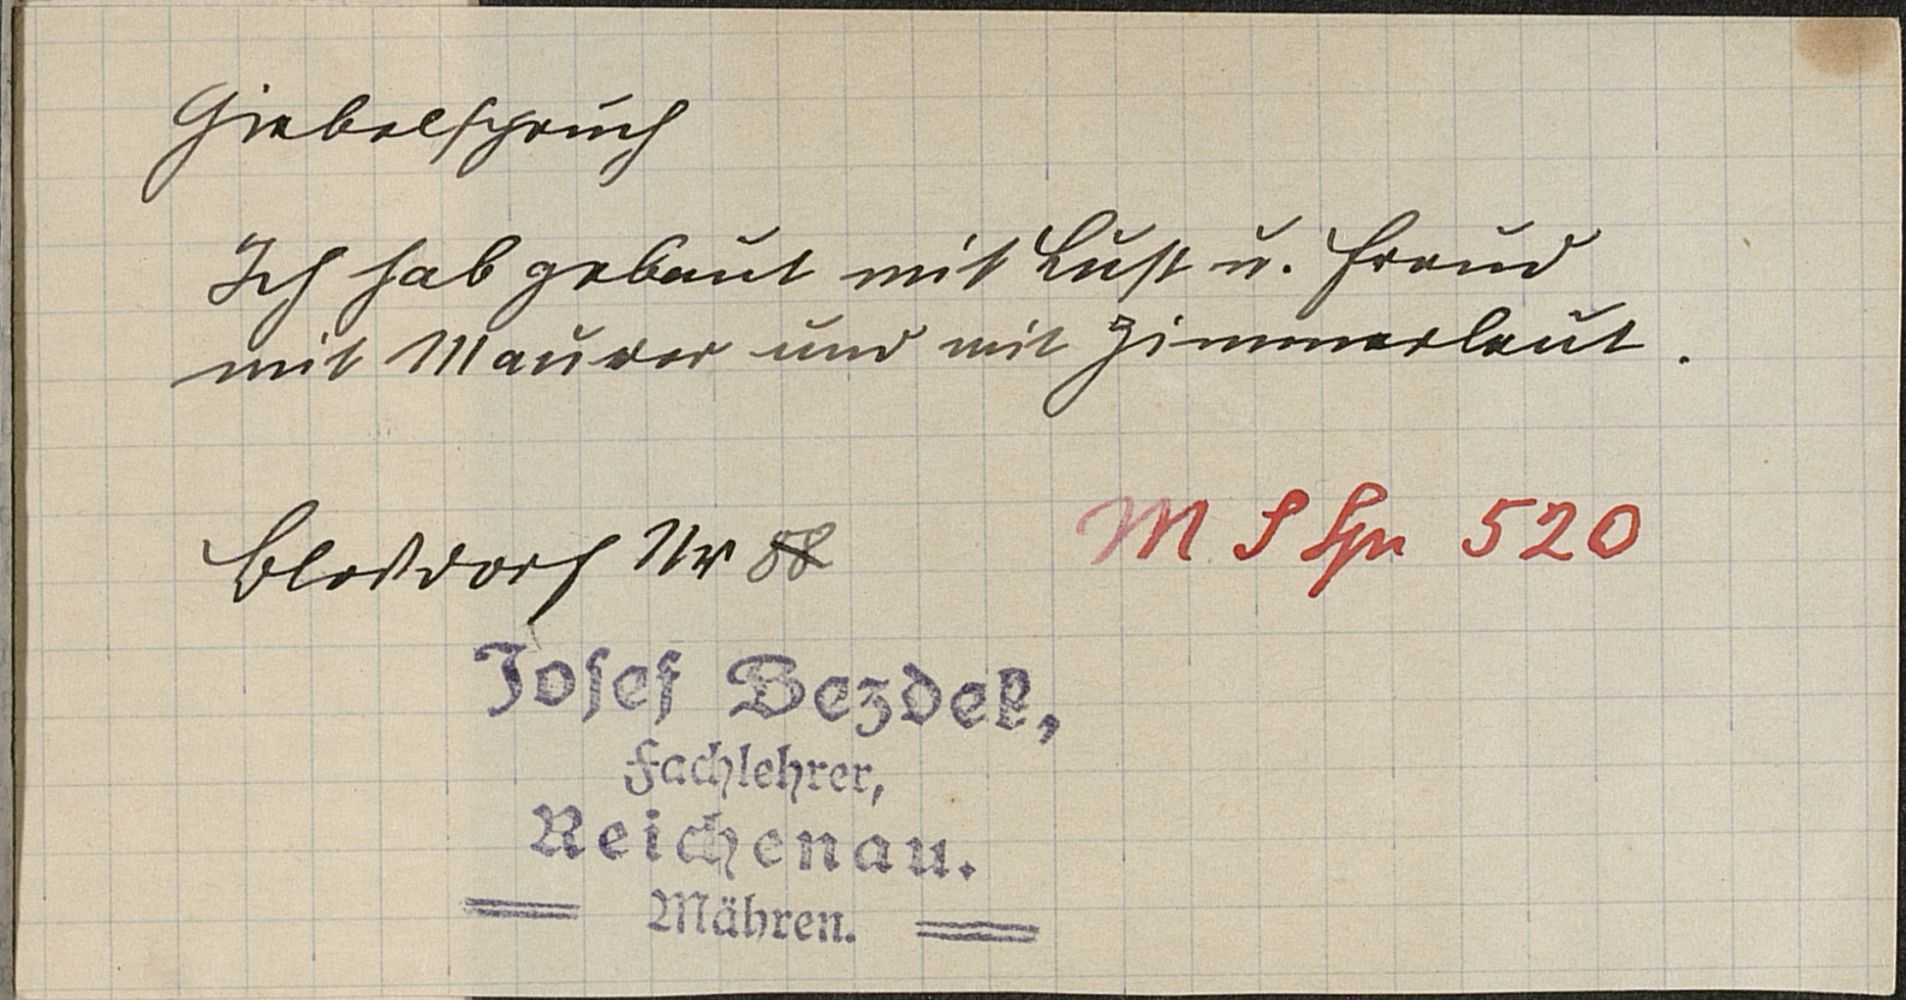 Giebelspruch
Ich hab gebaut mit Lust u. Freud
mit Maurer und mit Zimmerleut.
Bloßdorf Nr 58
M S Spr 520
Josef Bezdek,
Fachlehrer,
Reichenau.
Mähren.